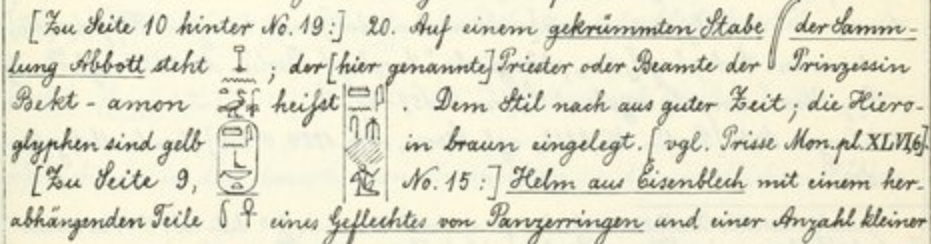 [Zu Seite 10 hinter No. 19:] 20. Auf einem gekrümmten Stabe der Samm-
lung Abbott steht ; der [hier genannte] Priester oder Beamte der Prinzessin
Bekt-amon heißt . Dem Stil nach aus guter Zeit; die Hiero-
glyphen sind gelb in braun eingelegt. [vgl. Prisse Mon. pl. XLVI,6].
[Zu Seite 9, No. 15:] Helm aus Eisenblech mit einem her-
abhängenden Teile eines Geflechtes von Panzerringen und einer Anzahl kleiner